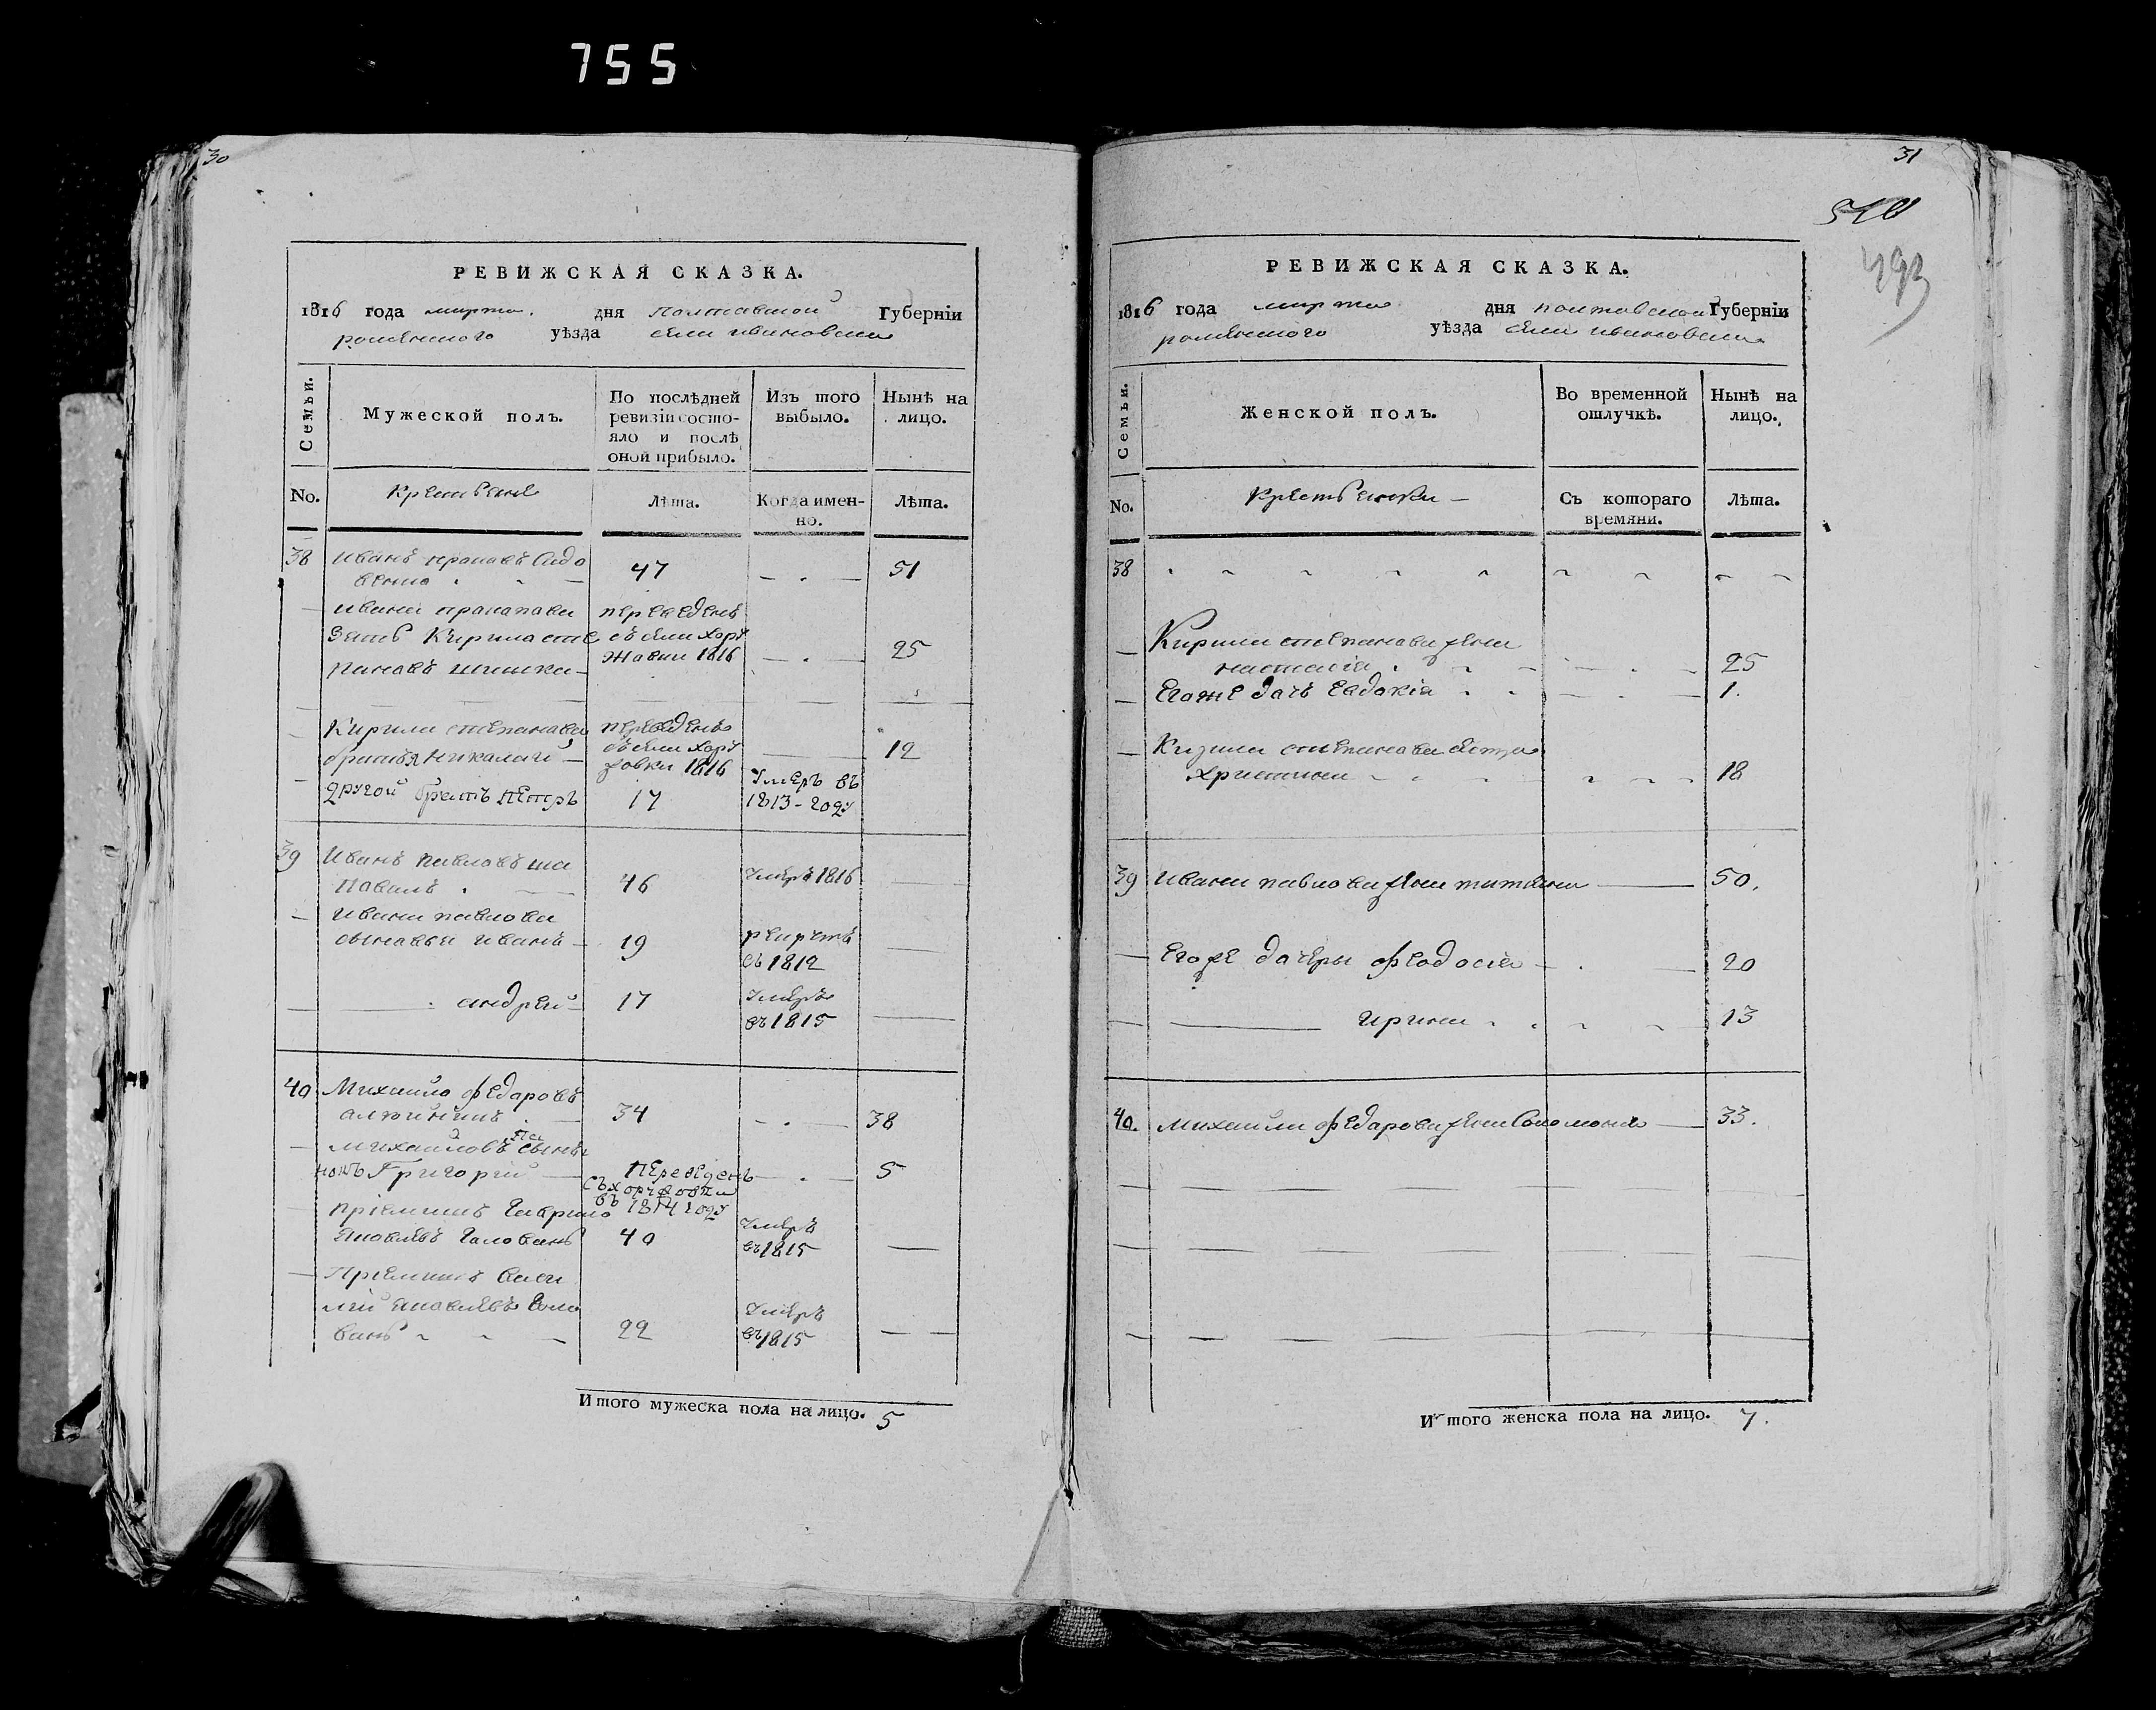 755
30
РЕВИЖСКАЯ СКАЗКА.
1816 года марта дня полтавской Губерніи
роменского уѣзда села ивановки
Семьи.
Мужеской полъ.
По послѣдней ревизіи состояло и послѣ оной прибыло.
Изъ того выбыло.
Нынѣ на лицо.
No.
Крестьяне
Лѣта.
Когда именно.
Лѣта.
38 Иванъ 47 — . — 51
— ивана переведенъ
зять Кирила сте съ села
пановъ 1816 — . — 25
— Кирила степанова переведенъ
братья николай — съ села 12
1816
— другой братъ петръ 17 Умеръ въ
1813 - году
39 Иванъ павловъ ша
повалъ . — 46 Умеръ 1816 —
— Ивана павлова
сыновья иванъ — 19 рекрутъ —
съ 1812
— — андрей 17 Умеръ —
въ 1815
40 Михайло федаровъ
34 — . — 38
— михайловъ сынъ
Григорій — переведенъ — . — 5
въ 1814 году
— пріемышъ Гаврило Умеръ
яковлевъ Головань 40 въ 1815 —
— Пріемышъ васи
лій яковлевъ Голо Умеръ
вань 22 въ 1815 — —
Итого мужеска пола на лицо. 5
31
РЕВИЖСКАЯ СКАЗКА.
1816 года марта дня полтавской Губерніи
роменского уѣзда села ивановки
Семьи.
Женской полъ.
Во временной отлучкѣ.
Нынѣ на лицо.
No.
Крестьянки —
Съ котораго времяни.
Лѣта.
38
— Кирила степанова жена
настасія 25
— Егоже дочь евдокія 1.
— Кирила степанова сестра
христина 18
39 Ивана павлова жена татьяна — 50.
— Егоже дочеры феодосія — . — 20
— — ирина 13
40. михайла федарова жена Соломонія — 33.
Итого женска пола на лицо. 7.